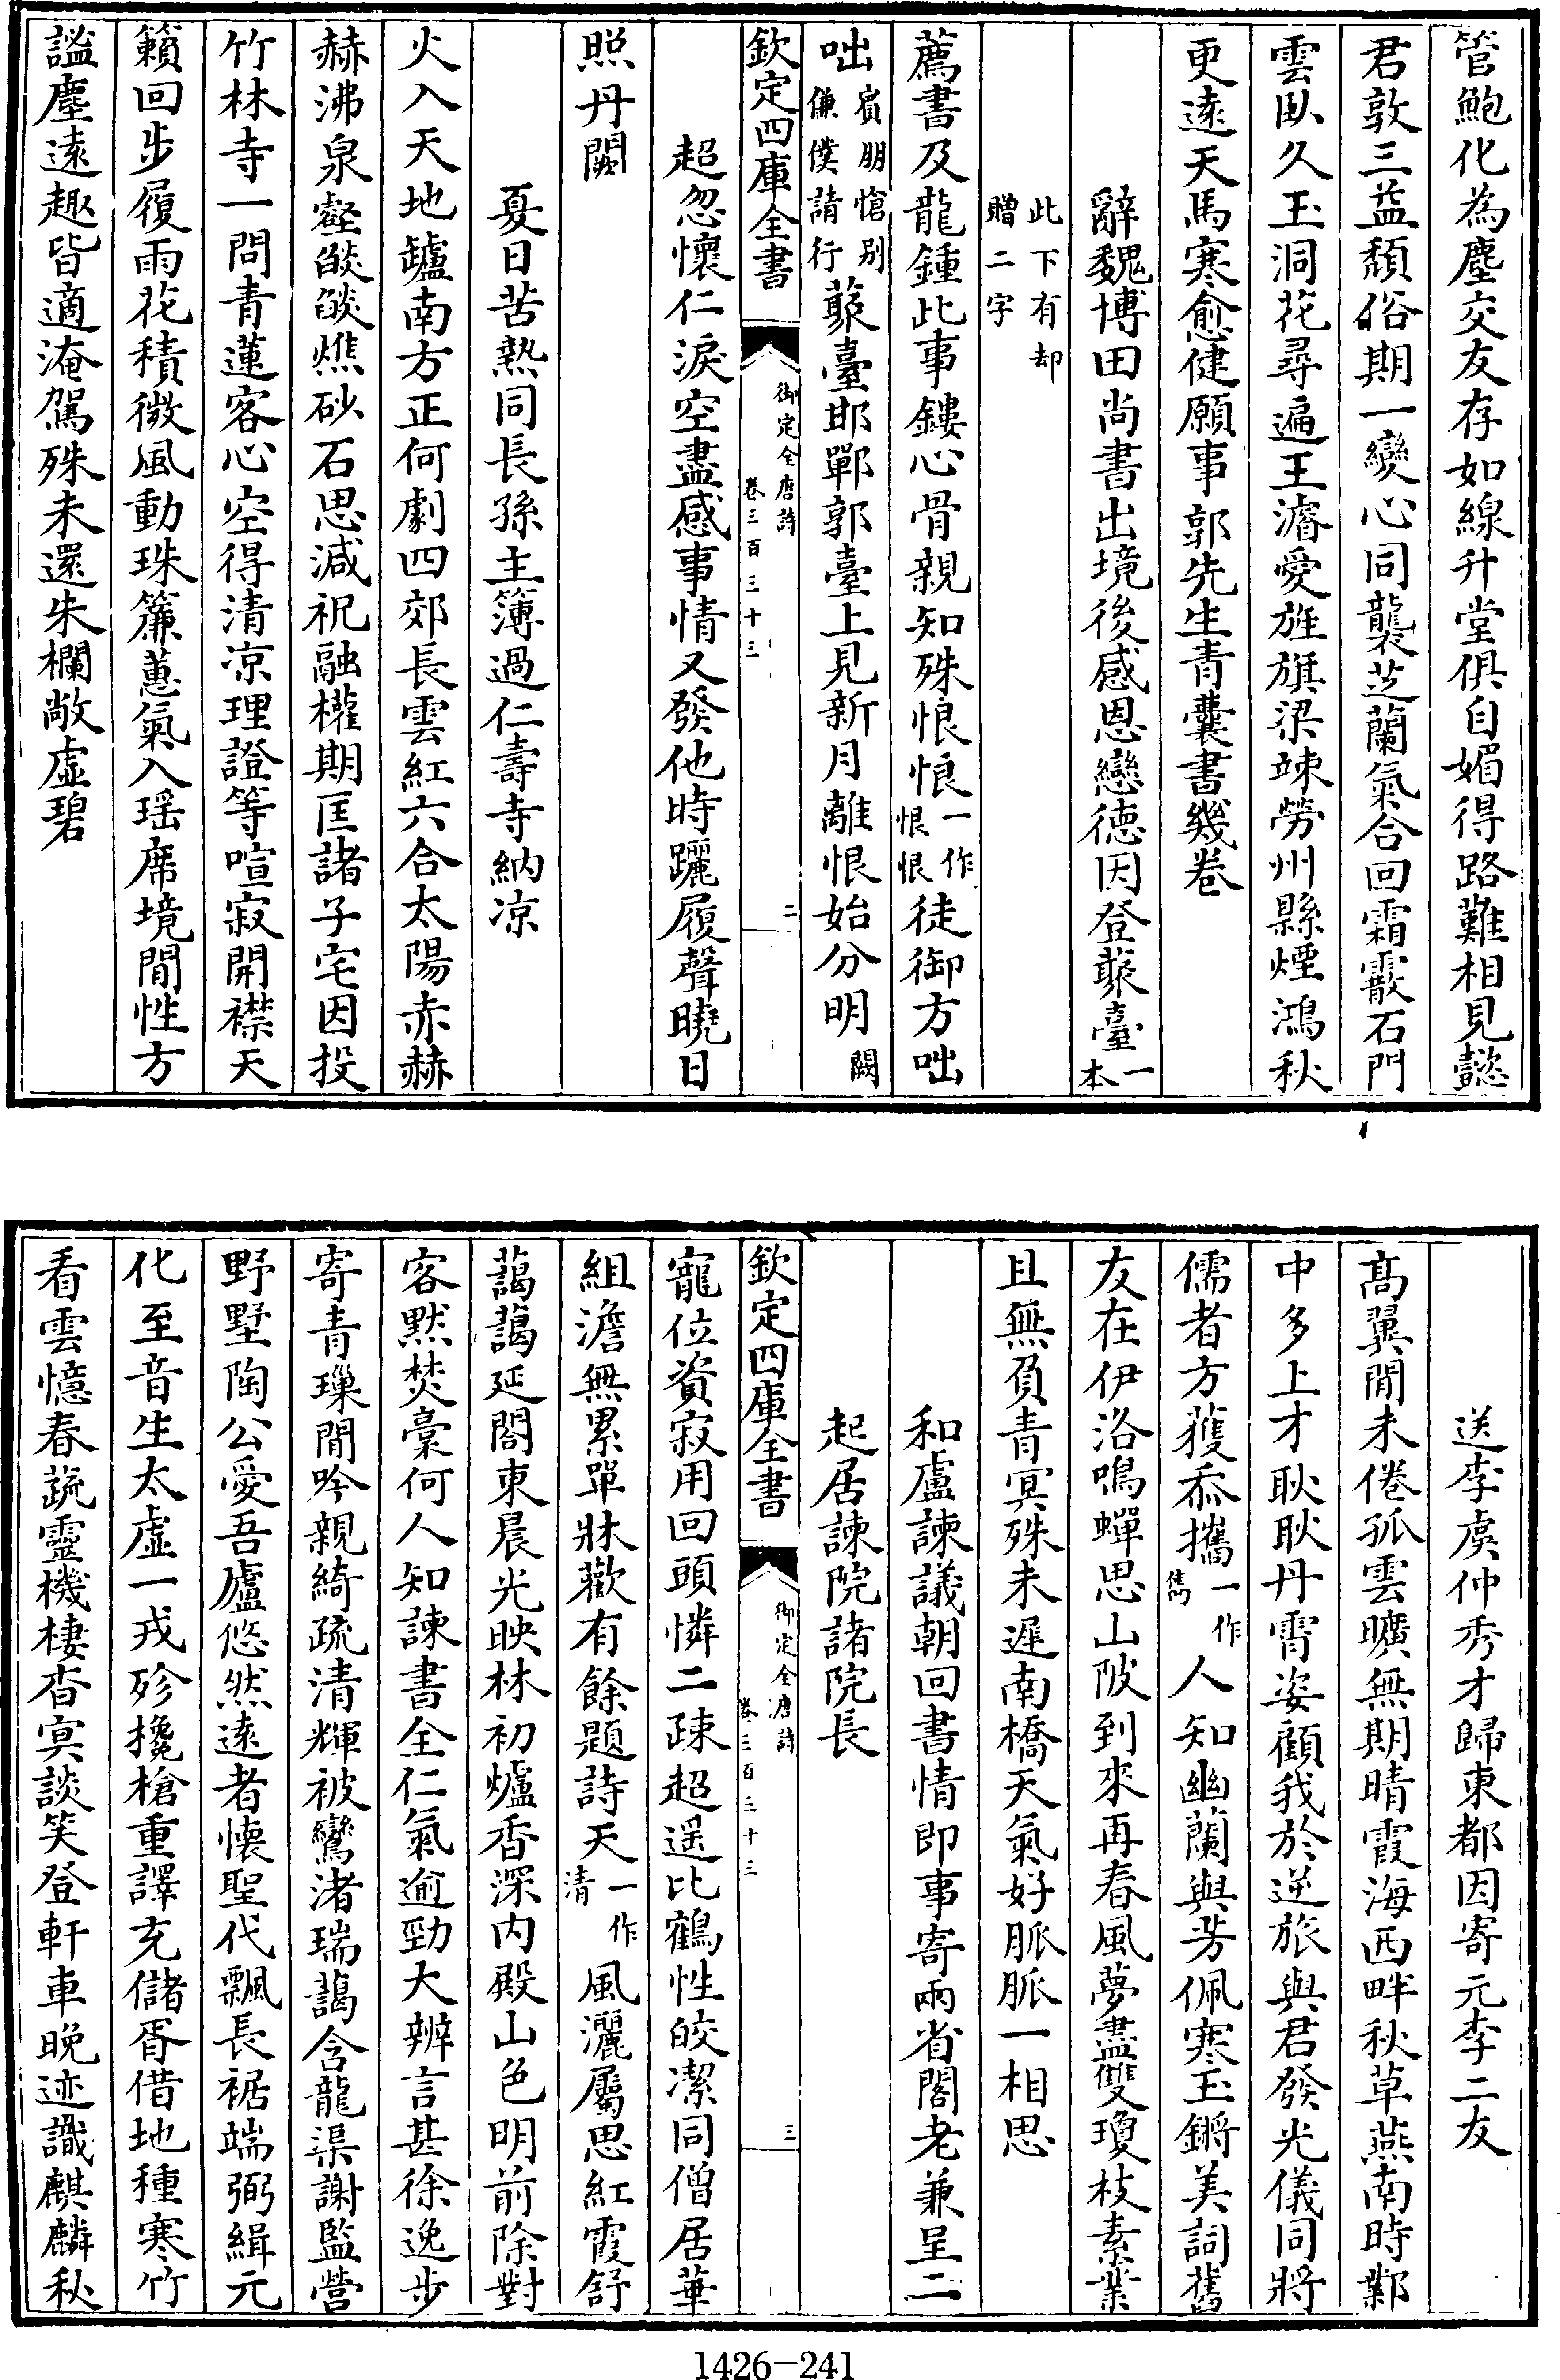 管鮑化為塵交友存如線升堂俱自媚得路難相見懿
君敦三益頹俗期一變心同襲芝蘭氣合回霜霰石門
雲臥久玉洞花尋遍王濬愛旌旗梁竦勞州縣煙鴻秋
更遠天馬寒愈健願事郭先生青囊書幾卷
辭魏博田尚書出境後感恩戀德因登藂臺一本
此下有却贈二字
薦書及龍鍾此事鏤心骨親知殊悢悢一作恨恨徒御方咄
咄賓朋愴别傔僕請行藂臺邯鄲郭臺上見新月離恨始分明闕
欽定四庫全書
御定全唐詩
卷三百三十三
二
超忽懷仁淚空盡感事情又發他時躧履聲曉日
照丹闕
夏日苦熱同長孫主簿過仁壽寺納凉
火入天地鑪南方正何劇四郊長雲紅六合太陽赤赫
赫沸泉壑燄燄燋砂石思減祝融權期匡諸子宅因投
竹林寺一問青蓮客心空得清凉理證等喧寂開襟天
籟回步履雨花積微風動珠簾蕙氣入瑶席境閒性方
謐塵遠趣皆適淹駕殊未還朱欄敞虛碧
送李虞仲秀才歸東都因寄元李二友
高翼閒未倦孤雲曠無期晴霞海西畔秋草燕南時鄴
中多上才耿耿丹霄姿顧我於逆旅與君發光儀同將
儒者方獲忝攜一作雋人知幽蘭與芳佩寒玉鏘美詞舊
友在伊洛鳴蟬思山陂到來再春風夢盡雙瓊枝素業
且無負青冥殊未遲南橋天氣好脈脈一相思
和盧諫議朝回書情即事寄兩省閣老兼呈二
起居諫院諸院長
欽定四庫全書
御定全唐詩
卷三百三十三
三
寵位資寂用回頭憐二疎超遥比鶴性皎潔同僧居華
組澹無累單牀歡有餘題詩天一作清風灑屬思紅霞舒
藹藹延閣東晨光映林初爐香深内殿山色明前除對
客默焚槀何人知諫書全仁氣逾勁大辨言甚徐逸步
寄青璅閒吟親綺疏清輝被鸞渚瑞藹含龍渠謝監營
野墅陶公愛吾廬悠然遠者懷聖代飄長裾端弼緝元
化至音生太虛一戎殄攙槍重譯充儲胥借地種寒竹
看雲憶春蔬靈機棲杳冥談笑登軒車晚迹識麒麟秋
1426-241